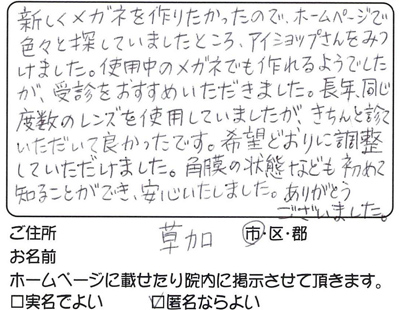 新しくメガネを作りたかったので、ホームページで
色々と探していましたところ、アイショップさんをみつ
けました。使用中のメガネでも作れるようでした
が、受診をおすすめいただきました。長年、同じ
度数のレンズを使用していましたが、きちんと診て
いただいて良かったです。希望どおりに調整
していただけました。角膜の状態なども初めて
知ることができ、安心いたしました。ありがとう
ございました。
ご住所 草加 市・区・郡
お名前
ホームページに載せたり院内に掲示させて頂きます。
□実名でよい ☑匿名ならよい